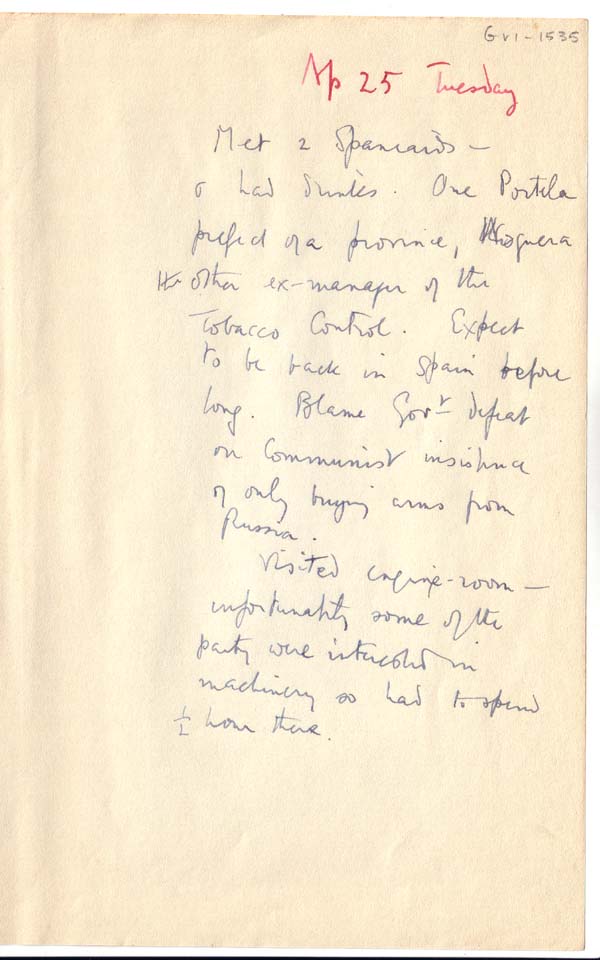 GVI-1535
Ap 25 Tuesday
Met 2 Spaniards —
& had drinks. One Portela
prefect of a province, Noguera
the other ex-manager of the
Tobacco Control. Expect
to be back in Spain before
long. Blame Govt defeat
on Communist insistence
of only buying arms from
Russia.
Visited engine-room —
unfortunately some of the
party were interested in
machinery so had to spend
½ hour there.